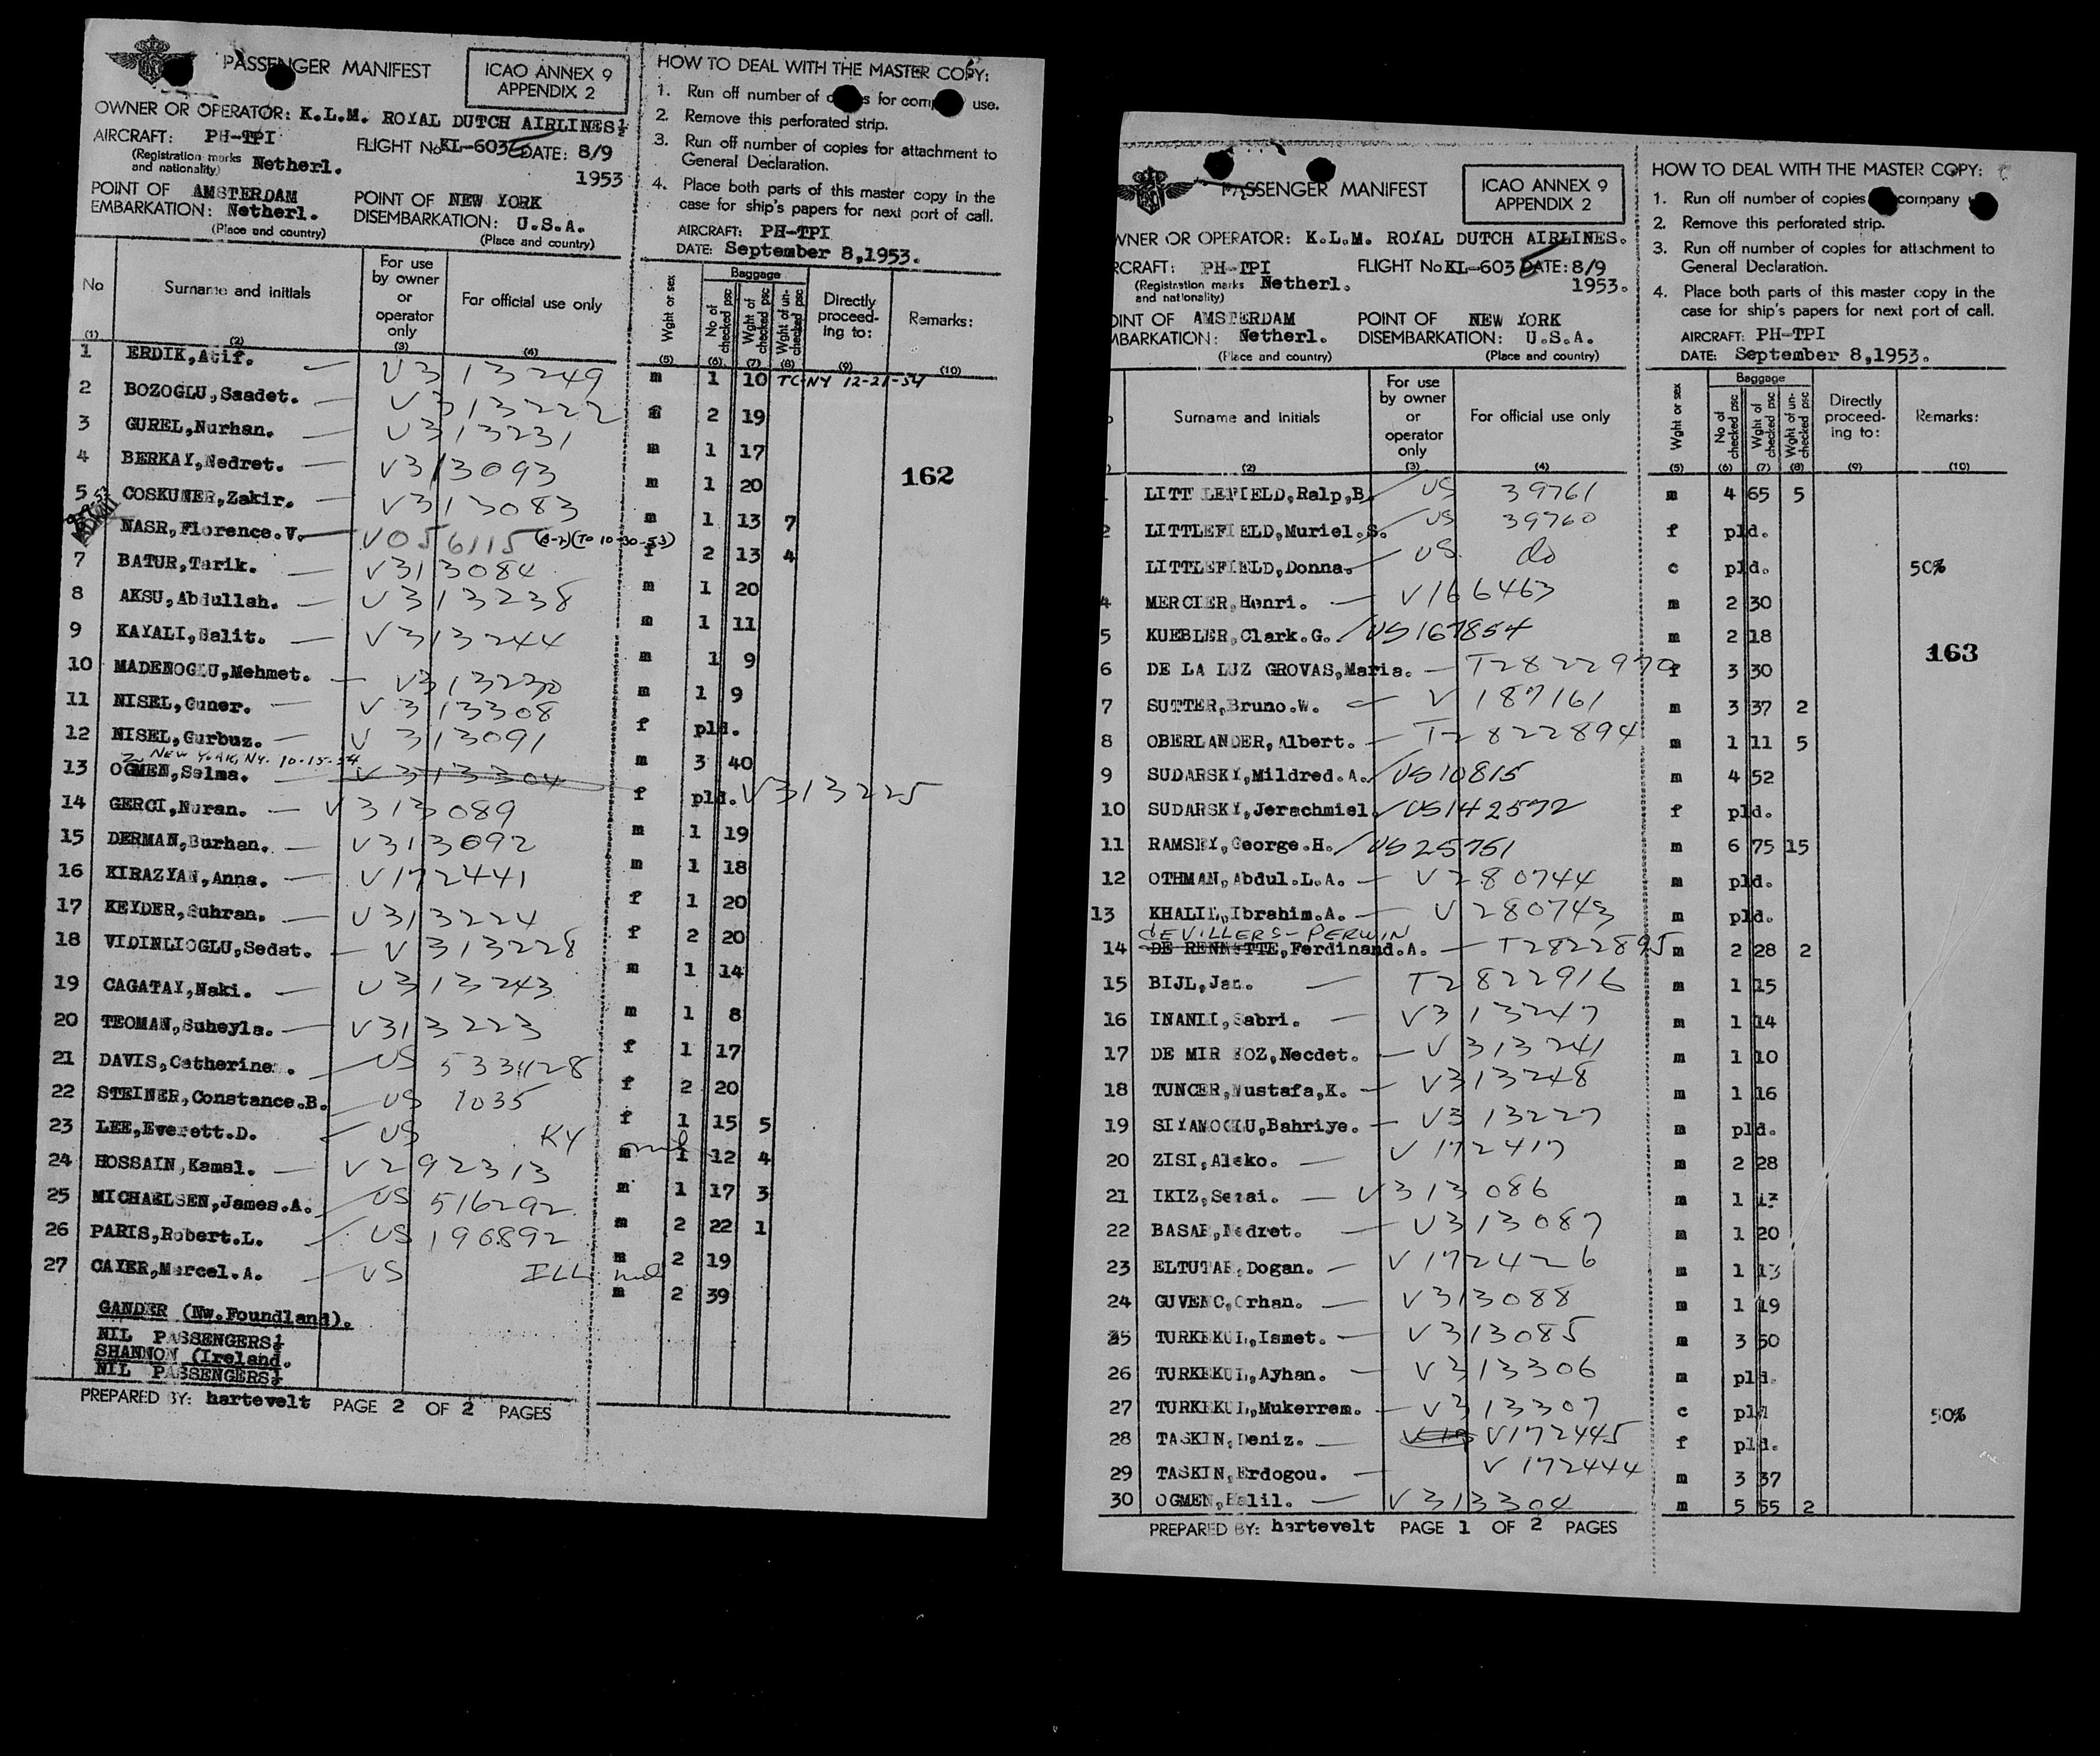 PASSENGER MANIFEST
ICAO ANNEX 9
APPENDIX 2
OWNER OR OPERATOR: K.L.M. ROYAL DUTCH AIRLINES
AIRCRAFT: PH-TPI FLIGHT No KL-603 DATE: 8/9
(Registration marks and nationality) Netherl. 1953
POINT OF EMBARKATION: AMSTERDAM Netherl.
(Place and country)
POINT OF DISEMBARKATION: NEW YORK U.S.A.
(Place and country)
HOW TO DEAL WITH THE MASTER COPY:
1. Run off number of for use.
2. Remove this perforated strip.
3. Run off number of copies for attachment to
General Declaration.
4. Place both parts of this master copy in the
case for ship's papers for next port of call.
AIRCRAFT: PH-TPI
DATE: September 8,1953.
No Surname and initials For use by owner or operator only For official use only Wght or sex Baggage No of checked psc Wght of checked psc Wght of un-checked psc Directly proceed-ing to: Remarks:
(1) (2) (3) (4) (5) (6) (7) (8) (9) (10)
1 ERDIK,Atif. V313249 m 1 10 TC-NY 12-21-54
2 BOZOGLU,Saadet. V313222 f 2 19
3 GUREL,Nurhan. V313231 m 1 17
4 BERKAY,Nedret. V313093 m 1 20
162
5 COSKUNER,Zakir. V313083 m 1 13 7
NASR,Florence.V. V056115 (TO 10-30-53) f 2 13 4
7 BATUR,Tarik. V313084 m 1 20
8 AKSU,Abdullah. V313238 m 1 11
9 KAYALI,Halit. V313244 m 1 9
10 MADENOGLU,Mehmet. V313230 m 1 9
11 NISEL,Guner. V313308 f pld.
12 NISEL,Gurbuz. V313091 m 3 40
NEW YORK, NY. 10-15-54
13 OGMEN,Selma. V313304 f pld. V313225
14 GERCI,Nuran. V313089 m 1 19
15 DERMAN,Burhan. V313092 m 1 18
16 KIRAZYAN,Anna. V172441 f 1 20
17 KEYDER,Suhran. V313224 f 2 20
18 VIDINLIOGLU,Sedat. V313228 m 1 14
19 CAGATAY,Naki. V313243 m 1 8
20 TEOMAN,Suheyla. V313223 f 1 17
21 DAVIS,Catherine. US 533428 f 2 20
22 STEINER,Constance.B. US 1035 f 1 15 5
23 LEE,Everett.D. US KY m 1 12 4
24 HOSSAIN,Kamal. V292313 m 1 17 3
25 MICHAELSEN,James.A. US 516292 m 2 22 1
26 PARIS,Robert.L. US 196892 m 2 19
27 CAYER,Marcel.A. US ILL m 2 39
GANDER (Nw.Foundland).
NIL PASSENGERS
SHANNON (Ireland.
NIL PASSENGERS
PREPARED BY: hartevelt PAGE 2 OF 2 PAGES
PASSENGER MANIFEST
ICAO ANNEX 9
APPENDIX 2
WNER OR OPERATOR: K.L.M. ROYAL DUTCH AIRLINES.
RCRAFT: PH-TPI FLIGHT No KL-603 DATE: 8/9
(Registration marks and nationality) Netherl. 1953.
OINT OF MBARKATION: AMSTERDAM Netherl.
(Place and country)
POINT OF DISEMBARKATION: NEW YORK U.S.A.
(Place and country)
HOW TO DEAL WITH THE MASTER COPY:
1. Run off number of copies company
2. Remove this perforated strip.
3. Run off number of copies for attachment to
General Declaration.
4. Place both parts of this master copy in the
case for ship's papers for next port of call.
AIRCRAFT: PH-TPI
DATE: September 8,1953.
Surname and initials For use by owner or operator only For official use only Wght or sex Baggage No of checked psc Wght of checked psc Wght of un-checked psc Directly proceed-ing to: Remarks:
(2) (3) (4) (5) (6) (7) (8) (9) (10)
LITTLEFIELD,Ralp,B. US 39761 m 4 65 5
2 LITTLEFIELD,Muriel.S. US 39760 f pld.
LITTLEFIELD,Donna. US do c pld. 50%
4 MERCIER,Henri. V166463 m 2 30
5 KUEBLER,Clark.G. US167854 m 2 18
163
6 DE LA LUZ GROVAS,Maria. T2822970 f 3 30
7 SUTTER,Bruno.W. V187161 m 3 37 2
8 OBERLANDER,Albert. T2822894 m 1 11 5
9 SUDARSKY,Mildred.A. US10815 m 4 52
10 SUDARSKY,Jerachmiel. US142572 f pld.
11 RAMSEY,George.H. US25751 m 6 75 15
12 OTHMAN,Abdul.L.A. V280744 m pld.
13 KHALIL,Ibrahim.A. V280743 m pld.
deVILLERS-PERWIN
14 DE RENNETTE,Ferdinand.A. T2822895 m 2 28 2
15 BIJL,Jan. T2822916 m 1 15
16 INANLI,Sabri. V313247 m 1 14
17 DE MIR KOZ,Necdet. V313241 m 1 10
18 TUNCER,Mustafa,K. V313248 m 1 16
19 SIYAMOGLU,Bahriye. V313227 m pld.
20 ZISI,Aleko. V172417 m 2 28
21 IKIZ,Sezai. V313086 m 1 17
22 BASAR,Nedret. V313087 m 1 20
23 ELTUTAR,Dogan. V172426 m 1 13
24 GUVENC,Orhan. V313088 m 1 19
25 TURKEKUL,Ismet. V313085 m 3 50
26 TURKEKUL,Ayhan. V313306 m pld.
27 TURKEKUL,Mukerrem. V313307 c pld 50%
28 TASKIN,Deniz. V172445 f pld.
29 TASKIN,Erdogou. V172444 m 3 37
30 OGMEN,Halil. V313304 m 5 55 2
PREPARED BY: hartevelt PAGE 1 OF 2 PAGES